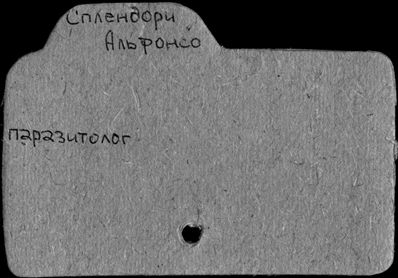 Сплендори
Альфонсо
паразитолог